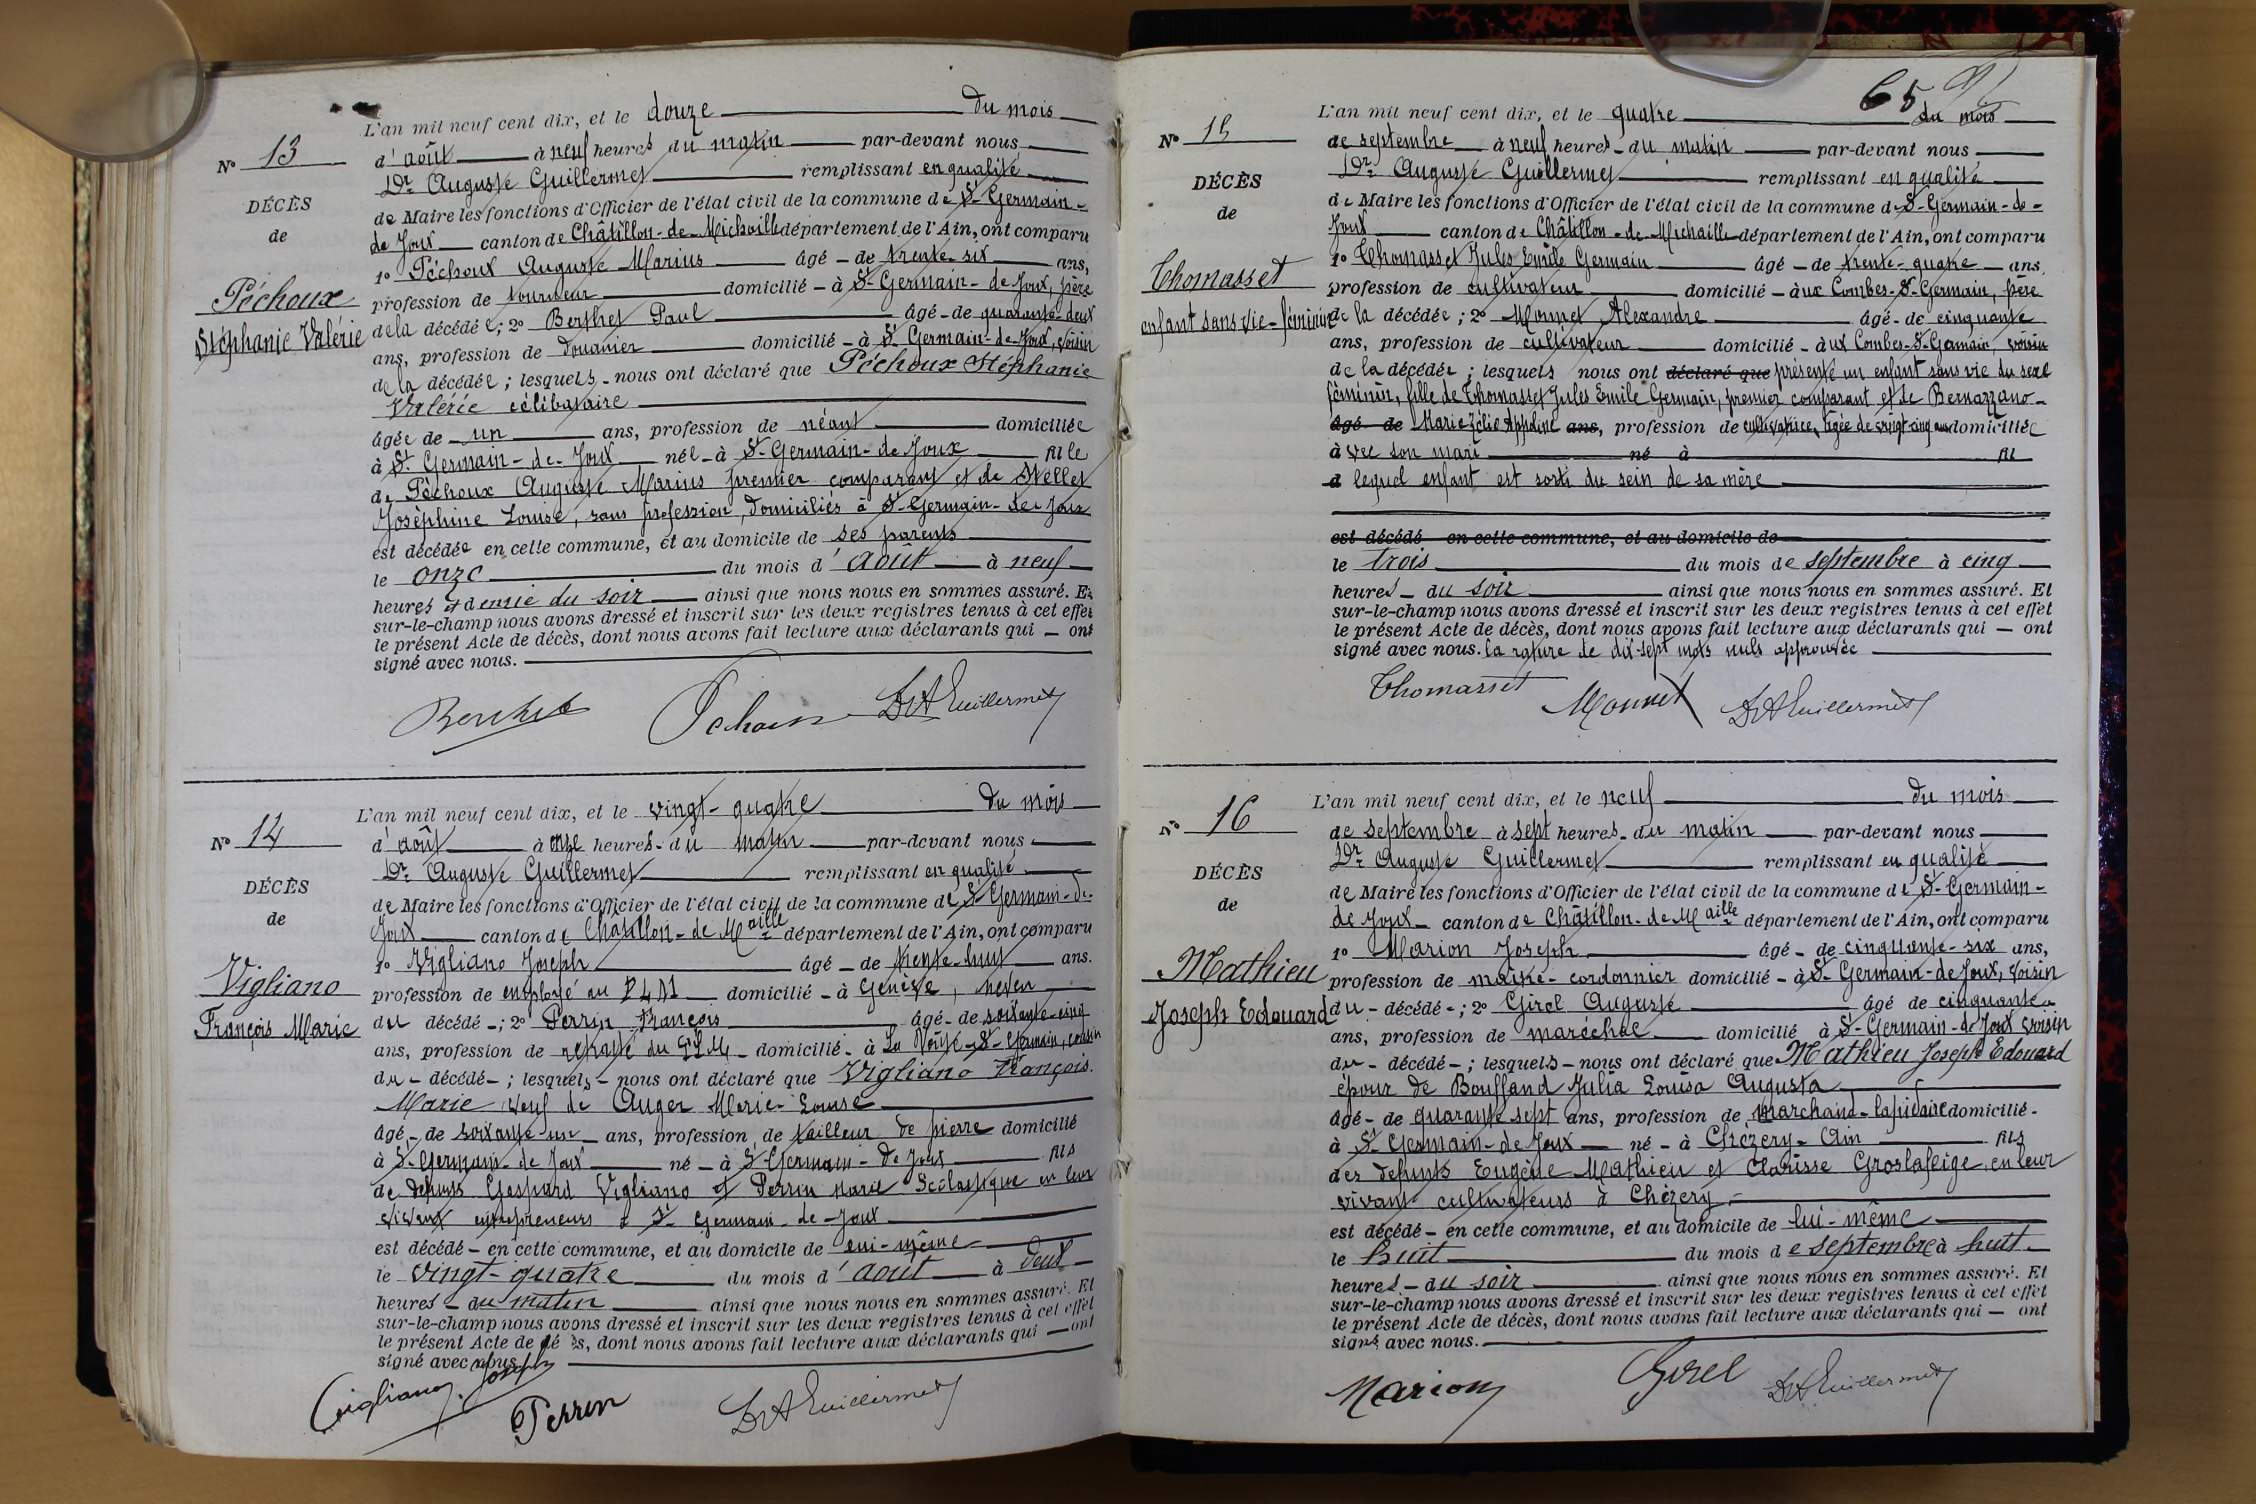 L'an mil neuf cent dix, et le douze du mois
N° 13
d'août à neuf heures du matin par-devant nous
Dr Auguste Guillermet remplissant en qualité
DÉCÈS
de Maire les fonctions d'Officier de l'état civil de la commune de St-Germain-
de
de Joux canton de Châtillon-de-Michaille département de l'Ain, ont comparu
1° Péchoux Auguste Marius âgé de trente-six ans,
Péchoux
profession de tourneur domicilié à St-Germain-de-Joux, père
Stéphanie Valérie
de la décédée; 2° Berthet Paul âgé de quarante-deux
ans, profession de douanier domicilié à St-Germain-de-Joux, voisin
de la décédée; lesquels nous ont déclaré que Péchoux Stéphanie
Valérie célibataire
âgée de un ans, profession de néant domiciliée
à St-Germain-de-Joux née à St-Germain-de-Joux fille
de Péchoux Auguste Marius premier comparant et de
Joséphine Louise, sans profession, domiciliés à St-Germain-de-Joux
est décédée en cette commune, et au domicile de ses parents
le onze du mois d'août à neuf
heures et demie du soir ainsi que nous nous en sommes assuré. Et
sur-le-champ nous avons dressé et inscrit sur les deux registres tenus à cet effet
le présent Acte de décès, dont nous avons fait lecture aux déclarants qui ont
signé avec nous.
Berthet Péchoux Dr A Guillermet
L'an mil neuf cent dix, et le vingt-quatre du mois
N° 14
d'août à onze heures du matin par-devant nous
Dr Auguste Guillermet remplissant en qualité
DÉCÈS
de Maire les fonctions d'Officier de l'état civil de la commune de St-Germain-de-
de
Joux canton de Châtillon-de-Maille département de l'Ain, ont comparu
1° Vigliano Joseph âgé de trente-huit ans.
Vigliano
profession de employé au PLM domicilié à Genève, neveu
François Marie
du décédé; 2° Perrin François âgé de soixante-cinq
ans, profession de retraité du PLM domicilié à La Voûte-St-Germain, cousin
du décédé; lesquels nous ont déclaré que Vigliano François
Marie veuf de Auger Marie-Louise
âgé de soixante-un ans, profession de tailleur de pierre domicilié
à St-Germain-de-Joux né à St-Germain-de-Joux fils
de défunts Gaspard Vigliano et Perrin Marie Scolastique en leur
vivant entrepreneurs à St-Germain-de-Joux
est décédé en cette commune, et au domicile de lui-même
le vingt-quatre du mois d'août à deux
heures du matin ainsi que nous nous en sommes assuré. Et
sur-le-champ nous avons dressé et inscrit sur les deux registres tenus à cet effet
le présent Acte de décès, dont nous avons fait lecture aux déclarants qui ont
signé avec nous.
Vigliano Joseph Perrin Dr A Guillermet
65
L'an mil neuf cent dix, et le quatre du mois
N° 15
de septembre à neuf heures du matin par-devant nous
Dr Auguste Guillermet remplissant en qualité
DÉCÈS
de Maire les fonctions d'Officier de l'état civil de la commune de St-Germain-de-
de
Joux canton de Châtillon-de-Michaille département de l'Ain, ont comparu
1° Thomasset Jules Emile Germain âgé de trente-quatre ans,
Thomasset
profession de cultivateur domicilié aux Combes-St-Germain, père
enfant sans vie-féminine
de la décédée; 2° Monnet Alexandre âgé de cinquante
ans, profession de cultivateur domicilié aux Combes-St-Germain, voisin
de la décédée; lesquels nous ont déclaré que présenté un enfant sans vie du sexe
féminin, fille de Thomasset Jules Emile Germain, premier comparant et de Bernazzano-
âgé de Marie Zélie Appoline ans, profession de cultivatrice, âgée de vingt-cinq ans domiciliée
à vec son mari né à fil
d lequel enfant est sorti du sein de sa mère
est décédé en cette commune, et au domicile de
le trois du mois de septembre à cinq
heures du soir ainsi que nous nous en sommes assuré. Et
sur-le-champ nous avons dressé et inscrit sur les deux registres tenus à cet effet
le présent Acte de décès, dont nous avons fait lecture aux déclarants qui ont
signé avec nous. la rature de dix-sept mots nuls approuvée
Thomasset Monnet Dr A Guillermet
L'an mil neuf cent dix, et le neuf du mois
N° 16
de septembre à sept heures du matin par-devant nous
Dr Auguste Guillermet remplissant en qualité
DÉCÈS
de Maire les fonctions d'Officier de l'état civil de la commune de St-Germain-
de
de Joux canton de Châtillon-de-Maille département de l'Ain, ont comparu
1° Marion Joseph âgé de cinquante-six ans,
Mathieu
profession de maître-cordonnier domicilié à St-Germain-de-Joux, voisin
Joseph Edouard
du décédé; 2° Girel Auguste âgé de cinquante
ans, profession de maréchal domicilié à St-Germain-de-Joux voisin
du décédé; lesquels nous ont déclaré que Mathieu Joseph Edouard
époux de Bouffand Julia Louisa Augusta
âgé de quarante-sept ans, profession de marchand-lapidaire domicilié
à St-Germain-de-Joux né à Chézery-Ain fils
des défunts Eugène Mathieu et Clarisse Groslafeige en leur
vivant cultivateurs à Chézery
est décédé en cette commune, et au domicile de lui-même
le huit du mois de septembre à huit
heures du soir ainsi que nous nous en sommes assuré. Et
sur-le-champ nous avons dressé et inscrit sur les deux registres tenus à cet effet
le présent Acte de décès, dont nous avons fait lecture aux déclarants qui ont
signé avec nous.
Marion Girel Dr A Guillermet